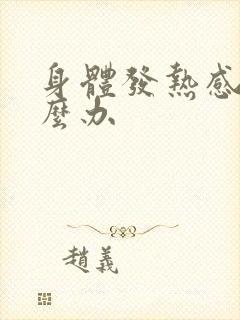 身體發熱感
麼办
趙義